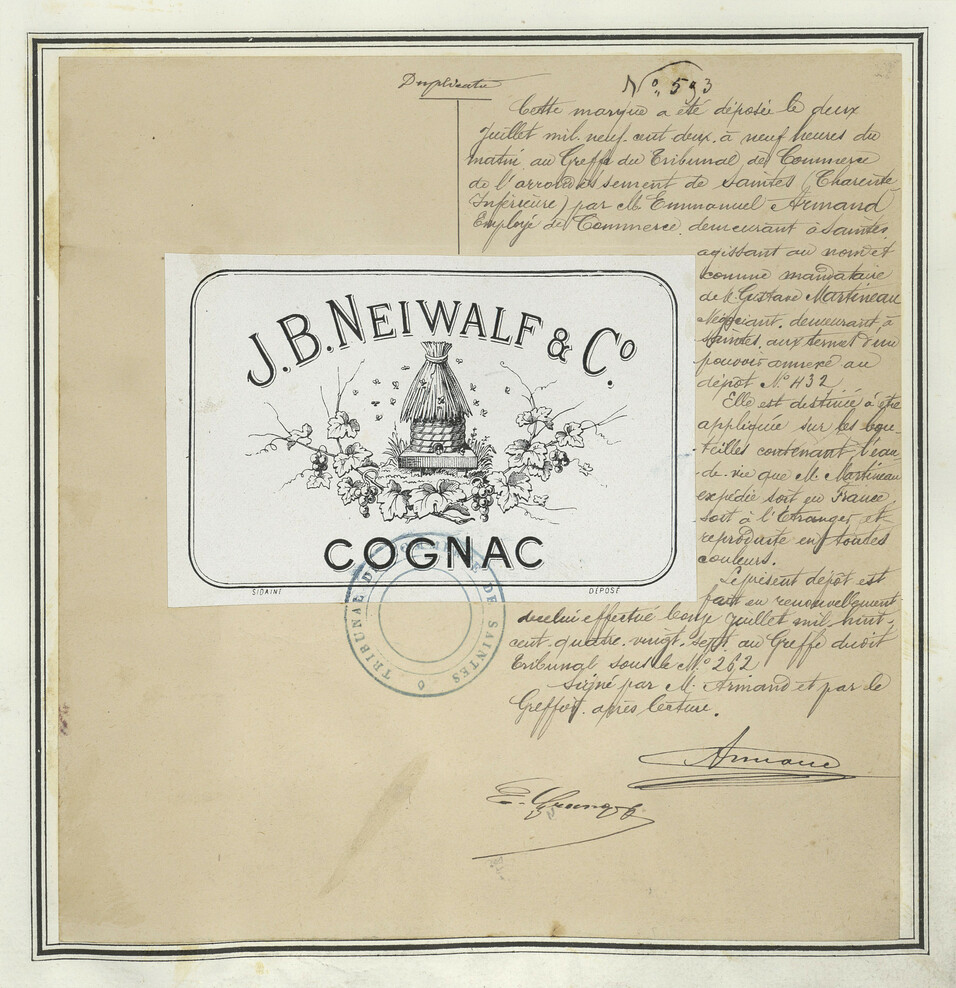 Duplicata
No. 593
Cette marque a été déposée le deux
Juillet mil neuf cent deux à neuf heures du
matin au Greffe du Tribunal de Commerce
de l'arrondissement de Saintes (Charente
Inférieure) par M. Emmanuel Armand
Employé de Commerce, demeurant à Saintes,
agissant au nom et
comme mandataire
de M. Gustave Martineau
Négociant, demeurant à
Saintes, aux termes d'un
pouvoir annexé au
dépôt No. 432
Elle est destinée à être
appliquée sur les bou-
teilles contenant l'eau
de-vie que M. Martineau
expédie soit en France
soit à l'Etranger, et
reproduite en toutes
couleurs.
Le présent dépôt est
fait en renouvellement
de celui effectué le onze Juillet mil huit-
cent quatre-vingt-sept au Greffe du dit
Tribunal sous le No. 262
Signé par M. Armand et par le
Greffier, après lecture.
Armand
J. B. NEIWALF & Co.
COGNAC
SIDAINE DÉPOSÉ
TRIBUNAL DE COMMERCE DE SAINTES